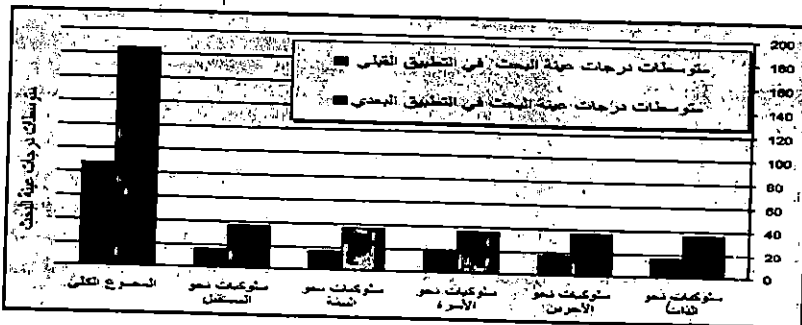 متوسطات درجات عينة البحث في التطبيق القبلي
متوسطات درجات عينة البحث في التطبيق البعدي
متوسطات درجات عينة البحث
200
180
160
140
120
100
80
60
40
20
0
سلوكيات نحو الذات
سلوكيات نحو الآخرين
سلوكيات نحو الأسرة
سلوكيات نحو البيئة
سلوكيات نحو المستقبل
المجموع الكلى